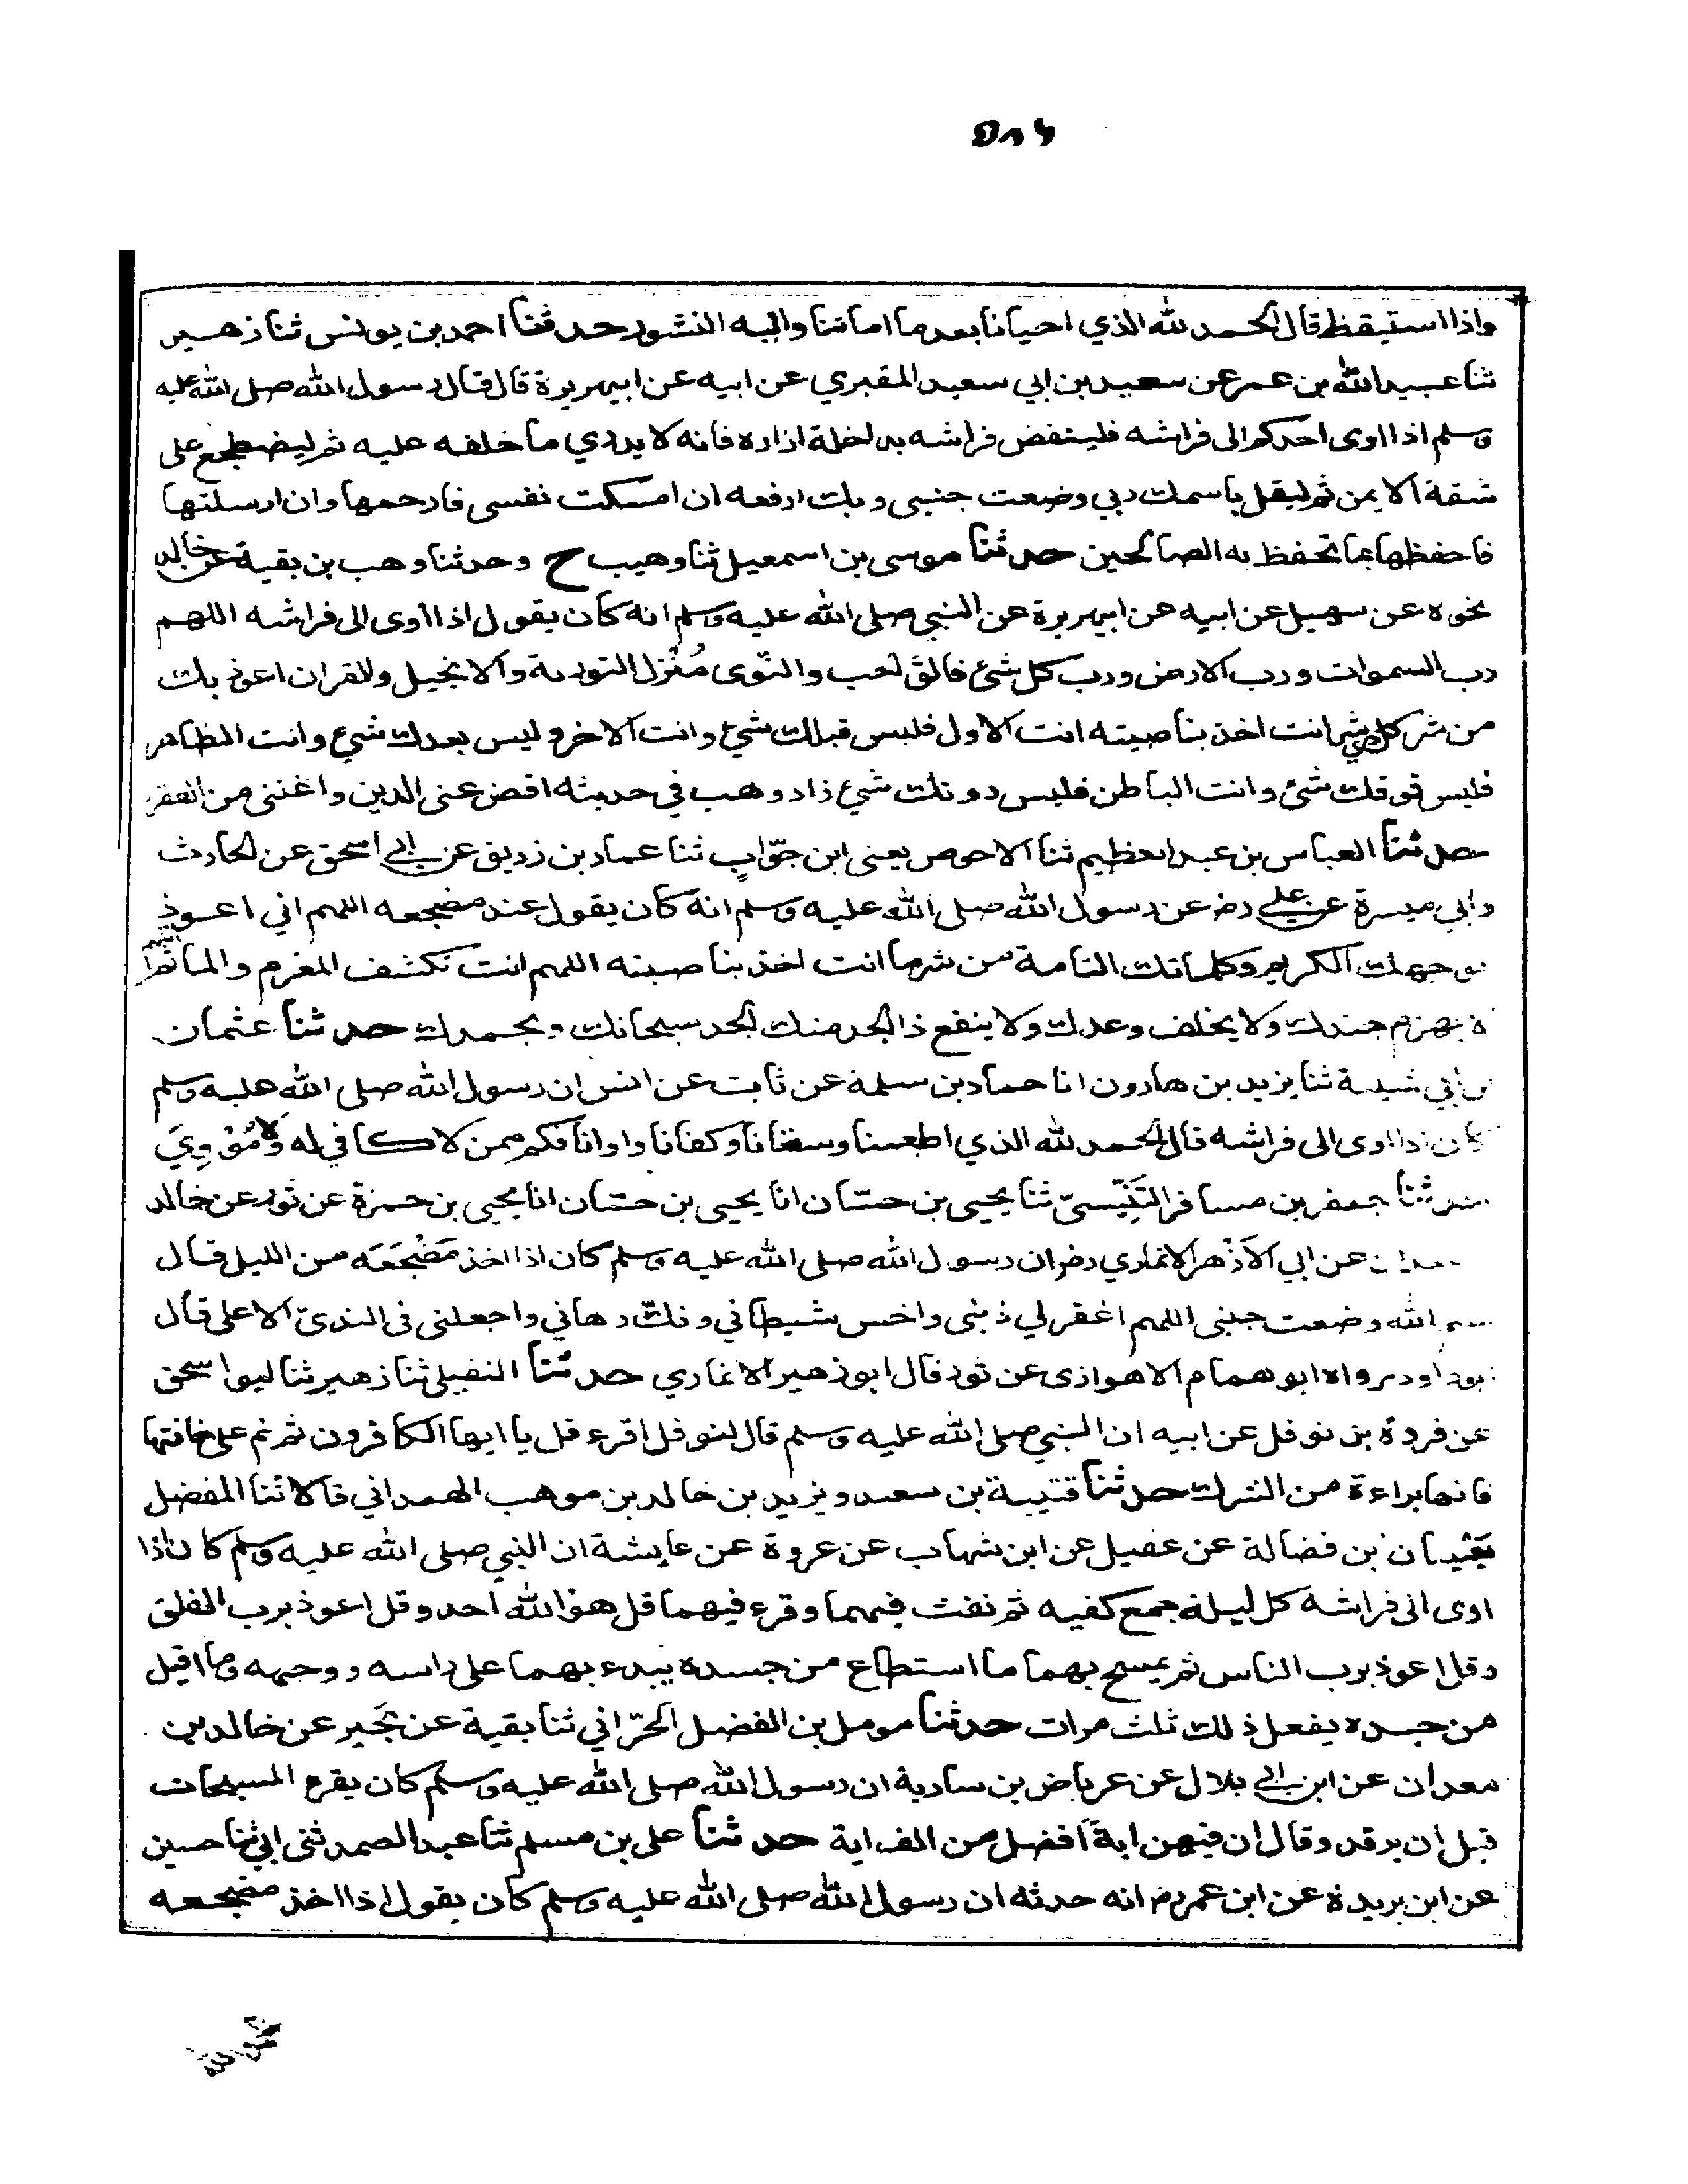 واذا استيقظ قال الحمد لله الذي احيانا بعد ما اماتنا واليه النشور حدثنا احمد بن يونس ثنا زهير
ثنا عبيد الله بن عمر عن سعيد بن ابي سعيد المقبري عن ابيه عن ابيهريرة قال قال رسول الله صلى الله عليه
وسلم اذا اوى احدكم الى فراشه فلينفض فراشه بداخلة ازاره فانه لا يدري ما خلفه عليه ثم ليضطجع على
شقة الايمن ثم ليقل باسمك ربي وضعت جنبي وبك ارفعه ان امسكت نفسي فارحمها وان ارسلتها
فاحفظها بما تحفظ به الصالحين حدثنا موسى بن اسمعيل ثنا وهيب ح وحدثنا وهب بن بقية عن خالد
نحوه عن سهيل عن ابيه عن ابيهريرة عن النبي صلى الله عليه وسلم انه كان يقول اذا اوى الى فراشه اللهم
رب السموات ورب الارض ورب كل شئ فالق الحب والنوى مُنْزل التورية والانجيل والقران اعوذ بك
من شر كل ذي شر انت اخذ بناصيته انت الاول فليس قبلك شئ وانت الاخر وليس بعدك شئ وانت الظاهر
فليس فوقك شئ وانت الباطن فليس دونك شئ زاد وهب في حديثه اقض عني الدين واغنني من الفقر
حدثنا العباس بن عبد العظيم ثنا الاحوص يعني ابن جوّاب ثنا عمار بن زريق عن ابي اسحق عن الحارث
وابي ميسرة عن علي رض عن رسول الله صلى الله عليه وسلم انه كان يقول عند مضجعه اللهم اني اعوذ
بوجهك الكريم وكلماتك التامة من شر ما انت اخذ بناصيته اللهم انت تكشف المغرم والماثم اللهم
لا يهزم جندك ولا يخلف وعدك ولا ينفع ذا الجد منك الجد سبحانك وبحمدك حدثنا عثمان
بن ابي شيبة ثنا يزيد بن هارون انا حماد بن سلمة عن ثابت عن انس ان رسول الله صلى الله عليه وسلم
كان اذا اوى الى فراشه قال الحمد لله الذي اطعمنا وسقانا وكفانا واوانا فكم ممن لا كافي له ولا مُؤْوِيَ
حدثنا جعفر بن مسافر التِنِّيسيّ ثنا يحيى بن حسّان انا يحيى بن حسّان انا يحيى بن حمزة عن ثور عن خالد
معدان عن ابي الاَزْهر الانماري رض ان رسول الله صلى الله عليه وسلم كان اذا اخذ مَضْجَعَه من الليل قال
بسم الله وضعت جنبي اللهم اغفر لي ذنبي واخس شيطاني وفك رهاني واجعلني في الندىّ الاعلى قال
ابو داود رواه ابو همام الاهوازي عن ثور قال ابو زهير الانماري حدثنا النفيلي ثنا زهير ثنا ابو اسحق
عن فروة بن نوفل عن ابيه ان النبي صلى الله عليه وسلم قال لنوفل اقرء قل يا ايها الكافرون ثم نم على خاتمتها
فانها براءة من الشرك حدثنا قتيبة بن سعيد ويزيد بن خالد بن موهب الهمداني قالا ثنا المفضل
يعنيان بن فضالة عن عقيل عن ابن شهاب عن عروة عن عايشة ان النبي صلى الله عليه وسلم كان اذا
اوى الى فراشه كل ليلة جمع كفيه ثم نفث فيهما وقرء فيهما قل هو الله احد وقل اعوذ برب الفلق
وقل اعوذ برب الناس ثم يمسح بهما ما استطاع من جسده يبدء بهما على راسه ووجهه وما اقبل
من جسده يفعل ذلك ثلث مرات حدثنا مومل بن الفضل الحرّاني ثنا بقية عن بَحير عن خالد بن
معدان عن ابن ابي بلال عن عرباض بن سارية ان رسول الله صلى الله عليه وسلم كان يقرء المسبحات
قبل ان يرقد وقال ان فيهن اية افضل من الف اية حدثنا علي بن مسلم ثنا عبد الصمد ثني ابي ثنا حسين
عن ابن بريدة عن ابن عمر رض انه حدثه ان رسول الله صلى الله عليه وسلم كان يقول اذا اخذ مضجعه